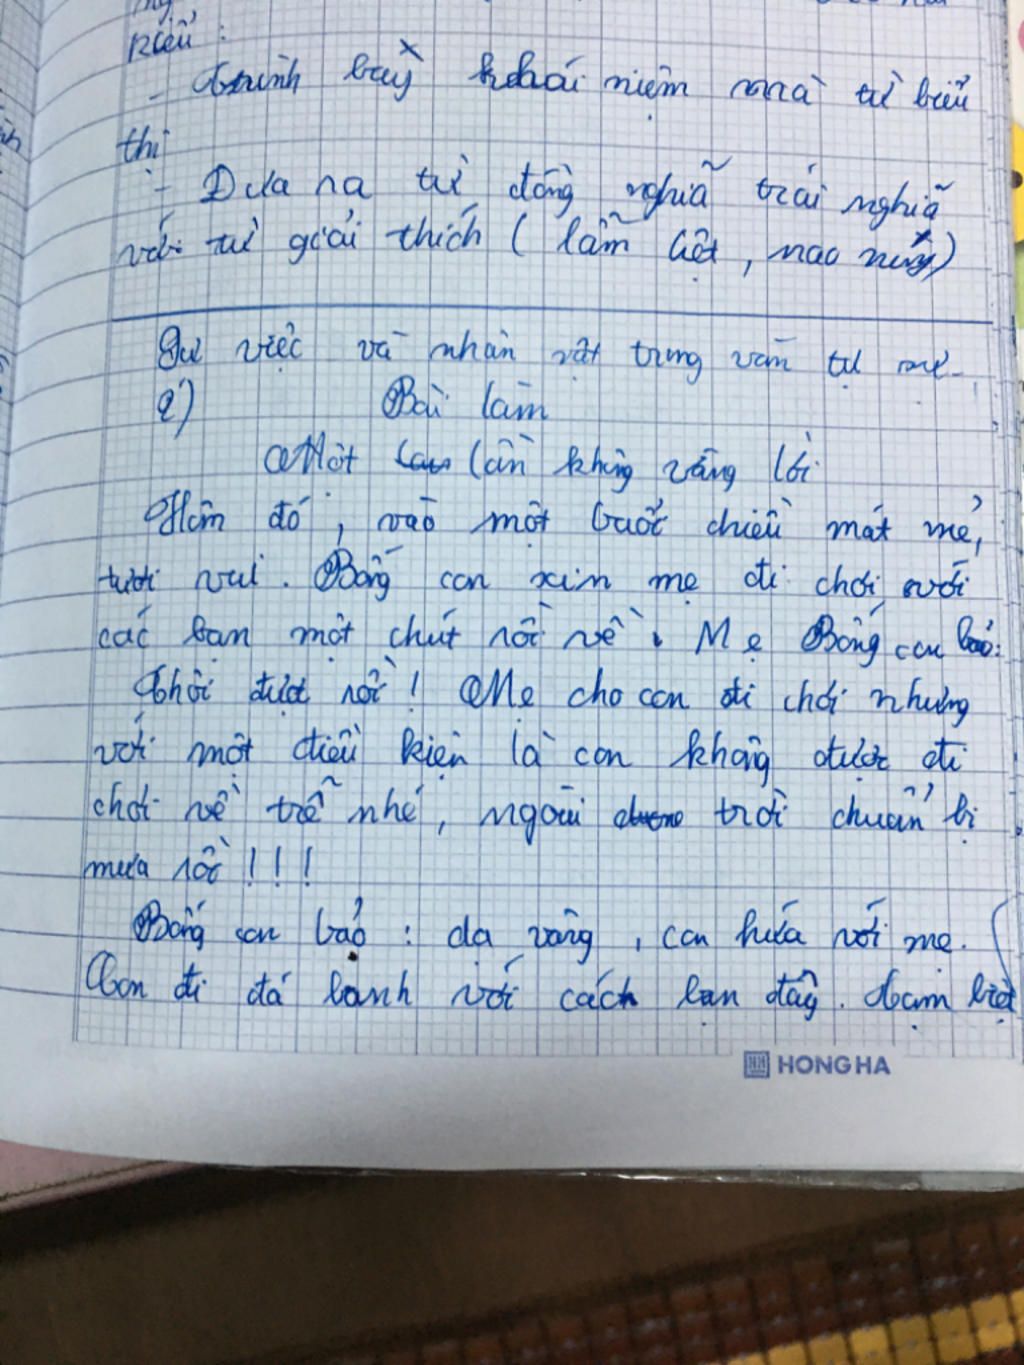 kiểu:
- trình bày khái niệm mà từ biểu
thị
- Đưa ra từ đồng nghĩa trái nghĩa
với từ giải thích ( lẫm liệt, nao núng)
Sự việc và nhân vật trong văn tự sự
2) Bài làm
Một lần không vâng lời
Hôm đó, vào một buổi chiều mát mẻ,
tươi vui. Bống con xin mẹ đi chơi với
các bạn một chút rồi về. Mẹ Bống con bảo:
Thôi được rồi! Mẹ cho con đi chơi nhưng
với một điều kiện là con không được đi
chơi về trễ nhé, ngoài trời chuẩn bị
mưa rồi!!!
Bống con bảo: dạ vâng, con hứa với mẹ.
Con đi đá banh với các bạn đây. Tạm biệt
HONG HA